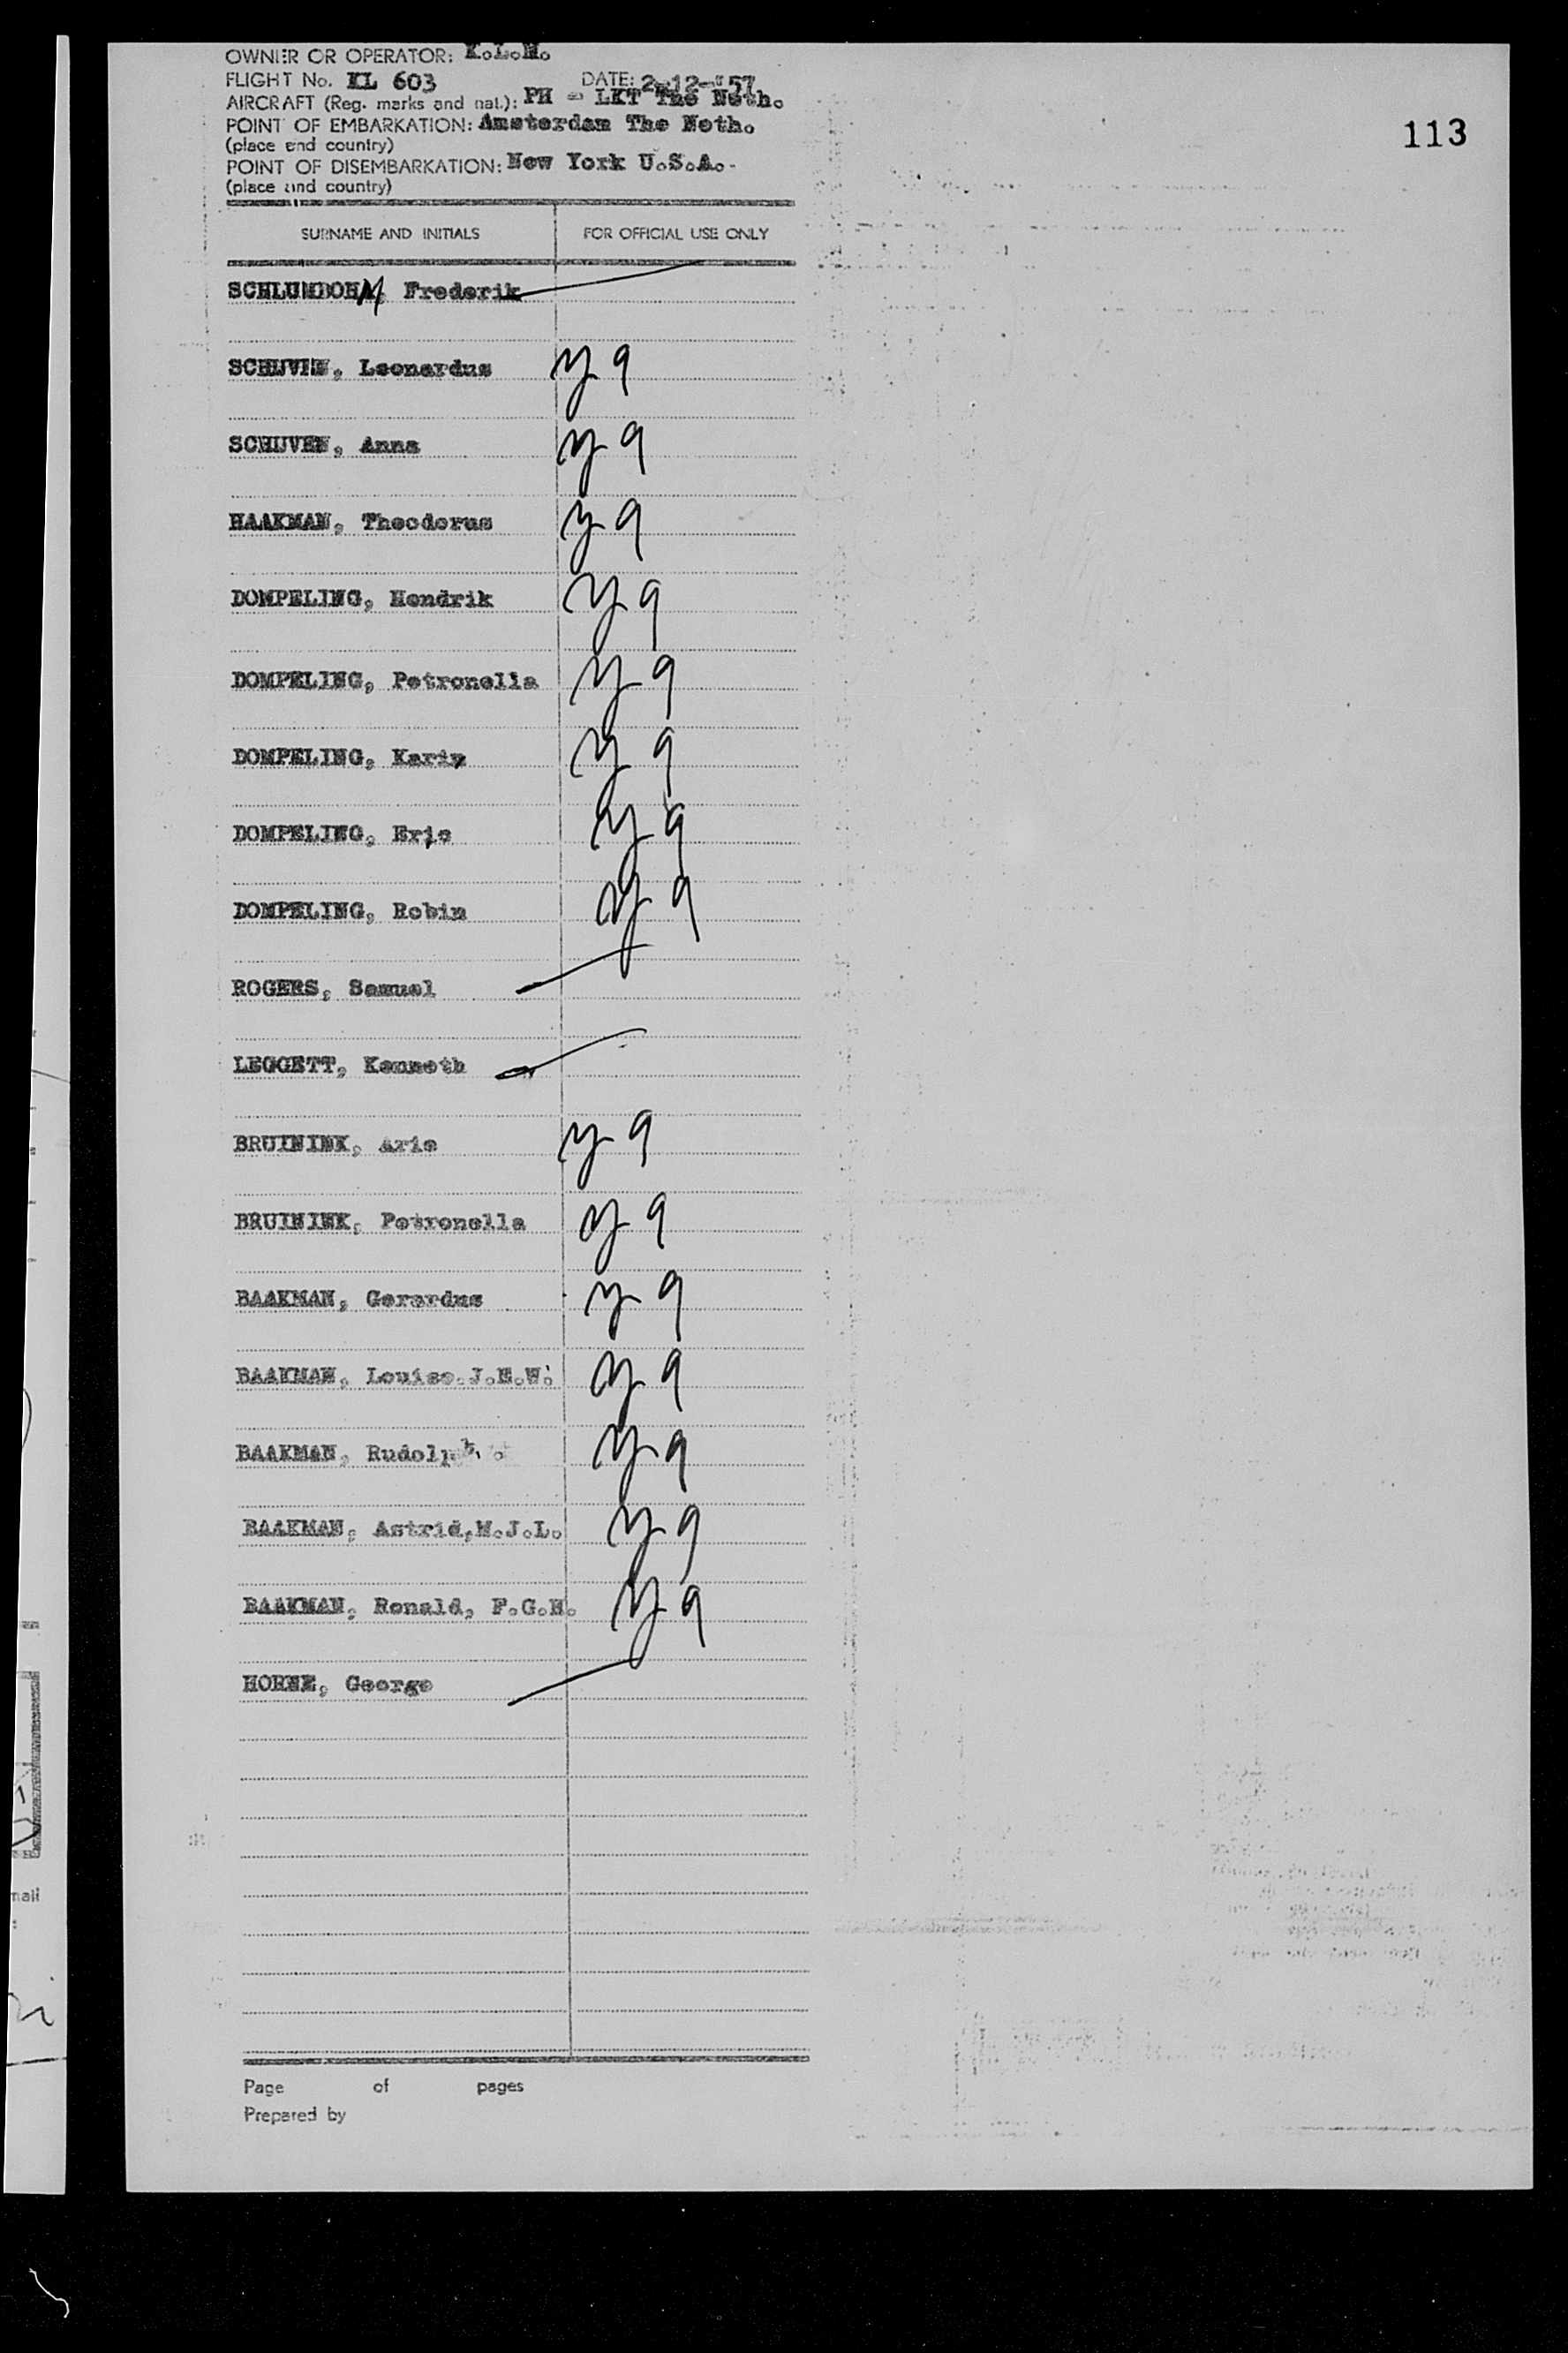 OWNER OR OPERATOR: K.L.M.
FLIGHT No. KL 603 DATE: 2-12-'57
AIRCRAFT (Reg. marks and nat.): PH - LKT The Neth.
POINT OF EMBARKATION: Amsterdam The Neth.
(place and country)
113
POINT OF DISEMBARKATION: New York U.S.A.-
(place and country)
SURNAME AND INITIALS FOR OFFICIAL USE ONLY
SCHLUMBOHM, Frederik
SCHUVEN, Leonardus y 9
SCHUVEN, Anna y 9
HAAKMAN, Theodorus y 9
DOMPELING, Hendrik y 9
DOMPELING, Petronella y 9
DOMPELING, Karin y 9
DOMPELING, Eric y 9
DOMPELING, Robin y 9
ROGERS, Samuel
LEGGETT, Kenneth
BRUININK, Arie y 9
BRUININK, Petronella y 9
BAAKMAN, Gerardus y 9
BAAKMAN, Louise.J.E.W. y 9
BAAKMAN, Rudolph y 9
BAAKMAN, Astrid,M.J.L. y 9
BAAKMAN, Ronald, F.G.H. y 9
HORNE, George
Page of pages
Prepared by